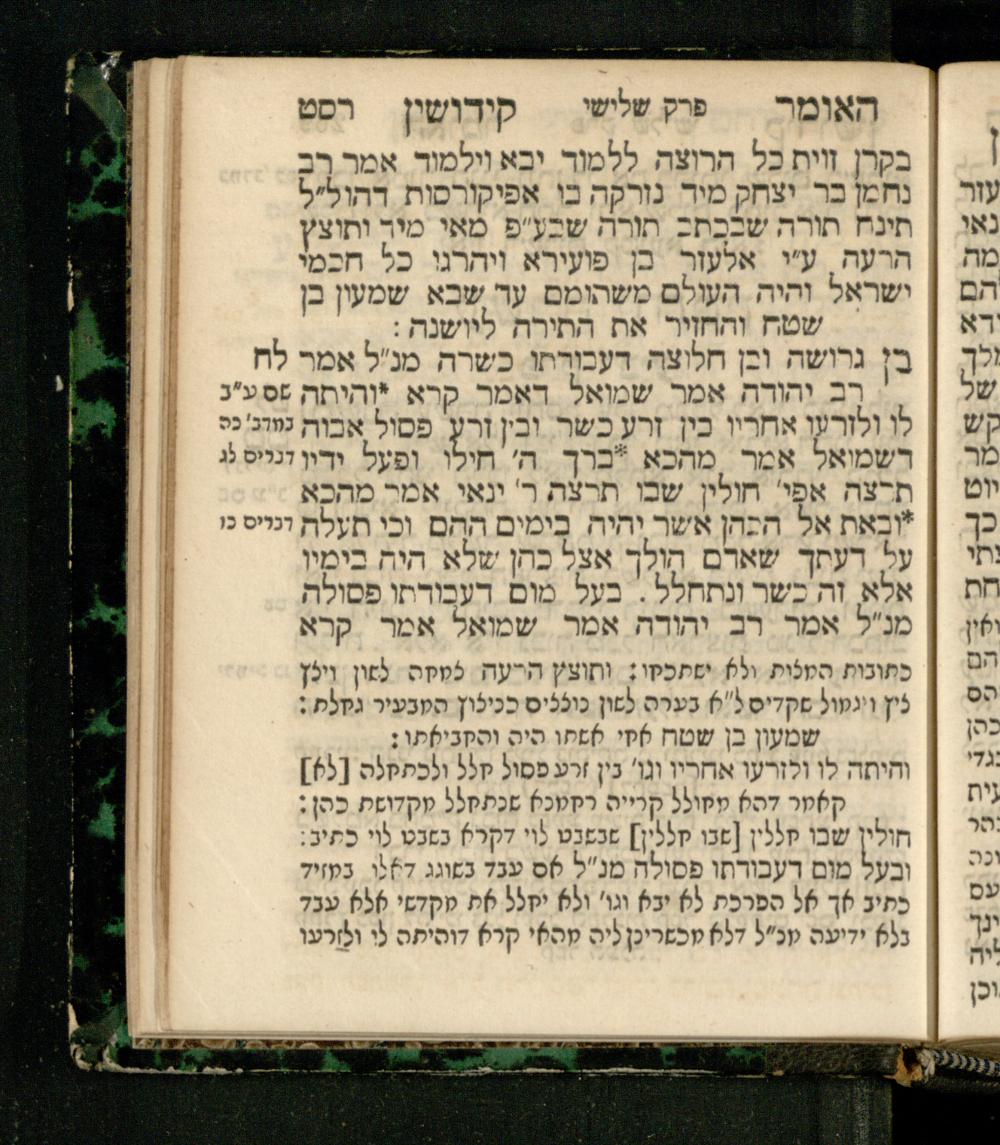 האומר פרק שלישי קידושין רסט
בקרן זוית כל הרוצה ללמוד יבא וילמוד אמר רב
נחמן בר יצחק מיד נזרקה בו אפיקורסות דהול״ל
תינח תורה שבכתב תורה שבע״פ מאי מיד ותוצץ
הרעה ע״י אלעזר בן פועירא ויהרגו כל חכמי
ישראל והיה העולם משהומם עד שבא שמעון בן
שטח והחזיר את התורה ליושנה :
בן גרושה ובן חלוצה דעבודתו כשרה מנ״ל אמר לח
רב יהודה אמר שמואל דאמר קרא *והיתה שם ע״ב
לו ולזרעו אחריו בין זרע כשר ובין זרע פסול אבוה במדב׳ כה
דשמואל אמר מהכא *ברך ה׳ חילו ופעל ידיו דברים לג
תרצה אפי׳ חולין שבו תרצה ר׳ ינאי אמר מהכא
*ובאת אל הכהן אשר יהיה בימים ההם וכי תעלה דברים כו
על דעתך שאדם הולך אצל כהן שלא היה בימיו
אלא זה כשר ונתחלל . בעל מום דעבודתו פסולה
מנ״ל אמר רב יהודה אמר שמואל אמר קרא
כתובות המצות ולא ישתכחו : ותוצץ הרעה צמחה לשון ויצץ
ציץ ויגמול שקדים ל״א בערה לשון כוללים כניצוץ המבעיר גחלת :
שמעון בן שטח אחי אשתו היה והחביאתו :
והיתה לו ולזרעו אחריו וגו׳ בין זרע פסול חלל ולכתחלה [לא]
קאמר דהא מחולל קרייה רחמנא שנתחלל מקדושת כהן :
חולין שבו חללין [שבו חללין] שבשבט לוי דקרא בשבט לוי כתיב :
ובעל מום דעבודתו פסולה מנ״ל אם עבד בשוגג דאלו במזיד
כתיב אך אל הפרכת לא יבא וגו׳ ולא יחלל את מקדשי אלא עבד
בלא ידיעה מנ״ל דלא מכשרינן ליה מהאי קרא דוהיתה לו ולזרעו